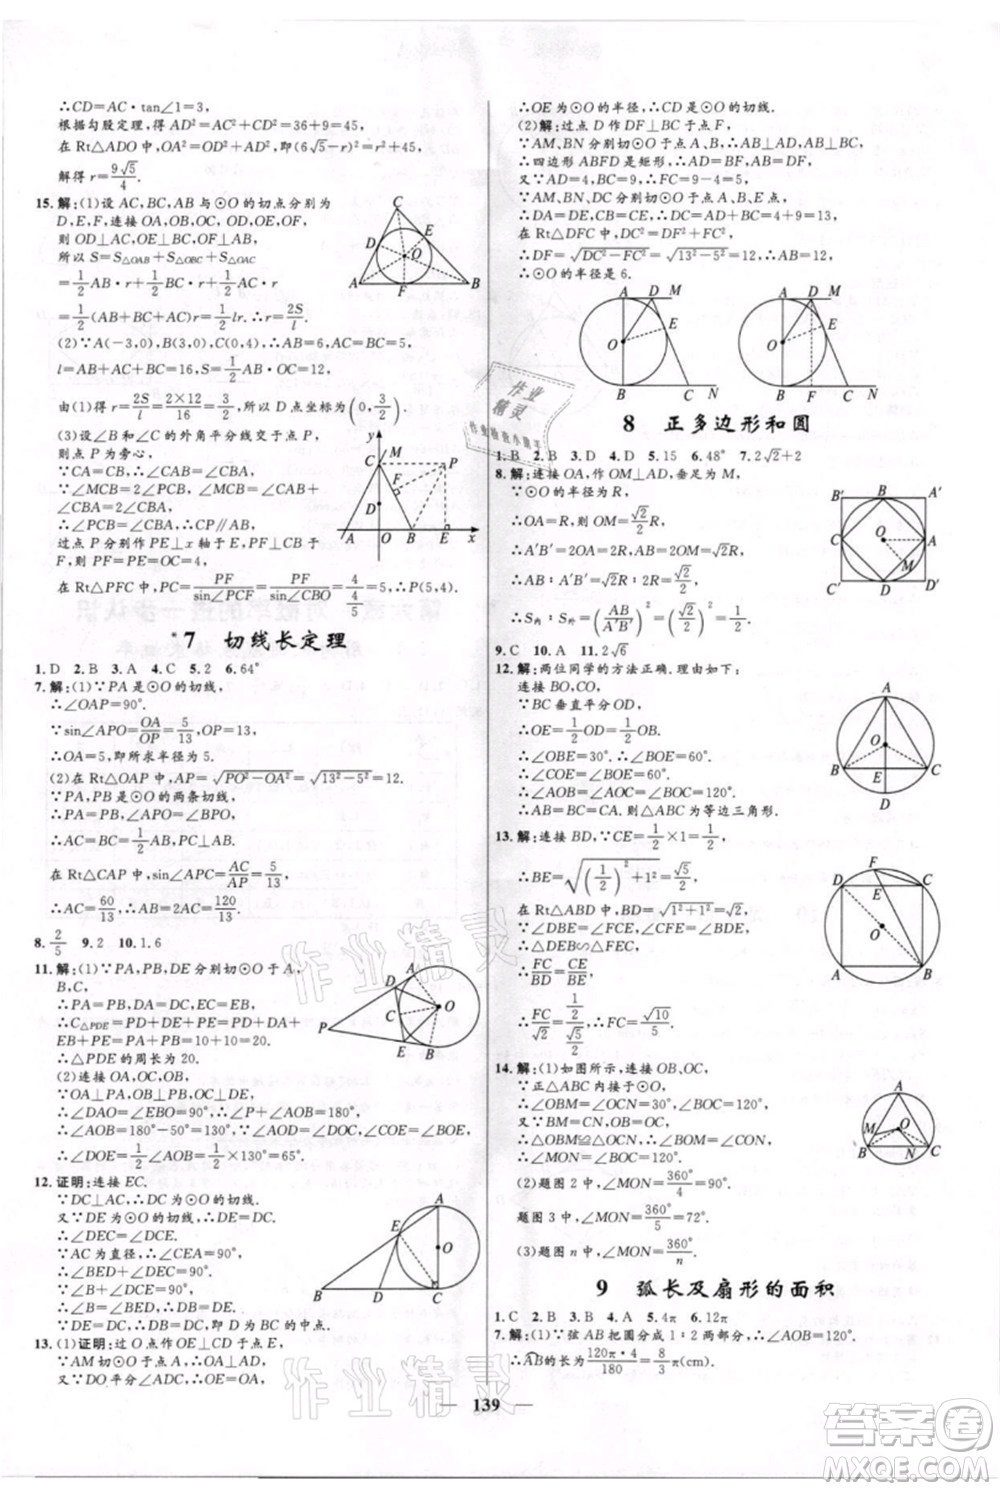 ∴CD=AC·tan∠1=3,
根据勾股定理,得 AD²=AC²+CD²=36+9=45,
在 Rt△ADO 中,OA²=OD²+AD²,即(6√5-r)²=r²+45,
解得 r=9√5/4.
15.解:(1)设 AC,BC,AB 与⊙O 的切点分别为
D,E,F,连接 OA,OB,OC,OD,OE,OF,
则 OD⊥AC,OE⊥BC,OF⊥AB,
所以 S=S△OAB+S△OBC+S△OAC
=1/2AB·r+1/2BC·r+1/2AC·r
=1/2(AB+BC+AC)r=1/2lr.∴r=2S/l.
(2)∵A(-3,0),B(3,0),C(0,4),
l=AB+AC+BC=16,S=1/2AB·OC=12,
由(1)得 r=2S/l=2×12/16=3/2,所以 D 点坐标为(0,3/2).
(3)设∠B 和∠C 的外角平分线交于点 P,
则点 P 为旁心,
∵CA=CB,∴∠CAB=∠CBA.
∵∠MCB=2∠PCB=2∠CBA,
∴∠PCB=∠CBA,∴CP∥AB.
过点 P 分别作 PE⊥x 轴于 E,PF⊥CB 于 F,
则 PF=PE=OC=4,
在 Rt△PFC 中,PC=PF/sin∠PCF=PF/sin∠CBO=4/(4/5)=5,∴P(5,4).
*7 切线长定理
1.D 2.B 3.A 4.C 5.2 6.64°
7.解:(1)∵PA 是⊙O 的切线,
∴∠OAP=90°.
∵sin∠APO=OA/OP=5/13,OP=13,
∴OA=5,即所求半径为 5.
(2)在 Rt△OAP 中,AP=√(PO²-OA²)=√(13²-5²)=12.
∵PA,PB 为⊙O 的两条切线,
∴PA=PB,∠APO=∠BPO,
∴AC=BC=1/2AB,PC⊥AB.
在 Rt△CAP 中,sin∠APC=AC/AP=5/13,
∴AC=60/13,∴AB=2AC=120/13.
8.2/5 9.2 10.1.6
11.解:(1)∵PA,PB,DE 分别切⊙O 于 A,
B,C,
∴PA=PB,DA=DC,EC=EB,
∴C△PDE=PD+DE+PE=PD+DA+
EB+PE=PA+PB=10+10=20.
∴△PDE 的周长为 20.
(2)连接 OA,OC,OD,OE,OB,
∵OA⊥PA,OB⊥PB,OC⊥DE,
∴∠DAO=∠EBO=90°,
∴∠AOB=180°-50°=130°.
∵∠AOD=∠DOC,∠COE=∠BOE,
∴∠DOE=1/2∠AOB=1/2×130°=65°.
12.证明:连接 EC.
∵DC⊥AC,∴DC 是⊙O 的切线.
又∵DE 是⊙O 的切线,∴DE=DC.
∴∠DEC=∠DCE.
∵AC 为直径,∴∠CEA=90°,
∴∠BED+∠DEC=90°,
∠B+∠DCE=90°.
∴∠BED=∠B.∴DE=BD.
∵DE=DC,∴CD=BD,
∴D 是 BC 的中点.
13.(1)证明:过 O 点作 OE⊥CD 于点 E,
∵AM 切⊙O 于点 A,∴OA⊥AD,
又∵DO 平分∠ADC,∴OE=OA,
∵OA 为⊙O 的半径,
∴OE 为⊙O 的半径,∴CD 是⊙O 的切线.
(2)解:过点 D 作 DF⊥BC 于点 F,
∵AM,BN 分别切⊙O 于点 A,B,
∴AB⊥AD,AB⊥BC,
∴四边形 ABFD 是矩形,
∴AD=BF,AB=DF,
又∵AD=4,BC=9,∴FC=9-4=5,
∵AM,BN,DC 分别切⊙O 于点 A,B,E,
∴DA=DE,CB=CE,∴DC=AD+BC=4+9=13.
在 Rt△DFC 中,DC²=DF²+FC²,
∴DF=√(DC²-FC²)=√(13²-5²)=12,∴AB=12,
∴⊙O 的半径是 6.
8 正多边形和圆
1.B 2.C 3.D 4.D 5.15 6.48° 7.2√2+2
8.解:连接 OA,作 OM⊥AD,垂足为 M.
∵⊙O 的半径为 R,
∴OA=R,则 OM=AM=√2/2R,
∴A′B′=2OA=2R,AB=√2R.
∴AB:A′B′=√2/2.
∴S内:S外=(AB/A′B′)²=(√2/2)²=1/2.
9.C 10.A 11.2√6
12.解:两位同学的方法正确.理由如下:
连接 BO,CO,
∵BC 垂直平分 OD,
∴OE=1/2OD=1/2OB.
∴∠OBE=30°.∴∠BOE=60°.
∵∠COE=∠BOE=60°,
∴∠AOB=∠AOC=120°.
∴AB=BC=CA.则△ABC 为等边三角形.
13.解:连接 BD,∵CE=1/2×1=1/2,
∴BE=√((1/2)²+1²)=√5/2,
在 Rt△ABD 中,BD=√(1²+1²)=√2,
∵∠DBE=∠FCE,∠CFE=∠BDE,
∴△DEB∽△FEC,
∴FC/BD=CE/BE,
∴FC/√2=(1/2)/(√5/2),∴FC=√10/5.
14.解:(1)如图所示,连接 OB,OC,
∵正△ABC 内接于⊙O,
∴∠OBM=∠OCN=30°,∠BOC=120°,
又∵BM=CN,OB=OC,
∴△OBM≌△OCN(SAS),
∴∠BOM=∠CON,
∴∠MON=∠BOC=120°.
(2)题图 2 中,∠MON=360°/4=90°,
题图 3 中,∠MON=360°/5=72°.
(3)题图 n 中,∠MON=360°/n.
9 弧长及扇形的面积
1.C 2.B 3.B 4.A 5.4π 6.12π
7.解:(1)∵弦 AB 把圆分成 1:2 两部分,∴∠AOB=120°.
∴AB的长为120π·4/180=8/3π(cm).
139
作业精灵
作业精灵
作业精灵
答案圈
MXQE.COM